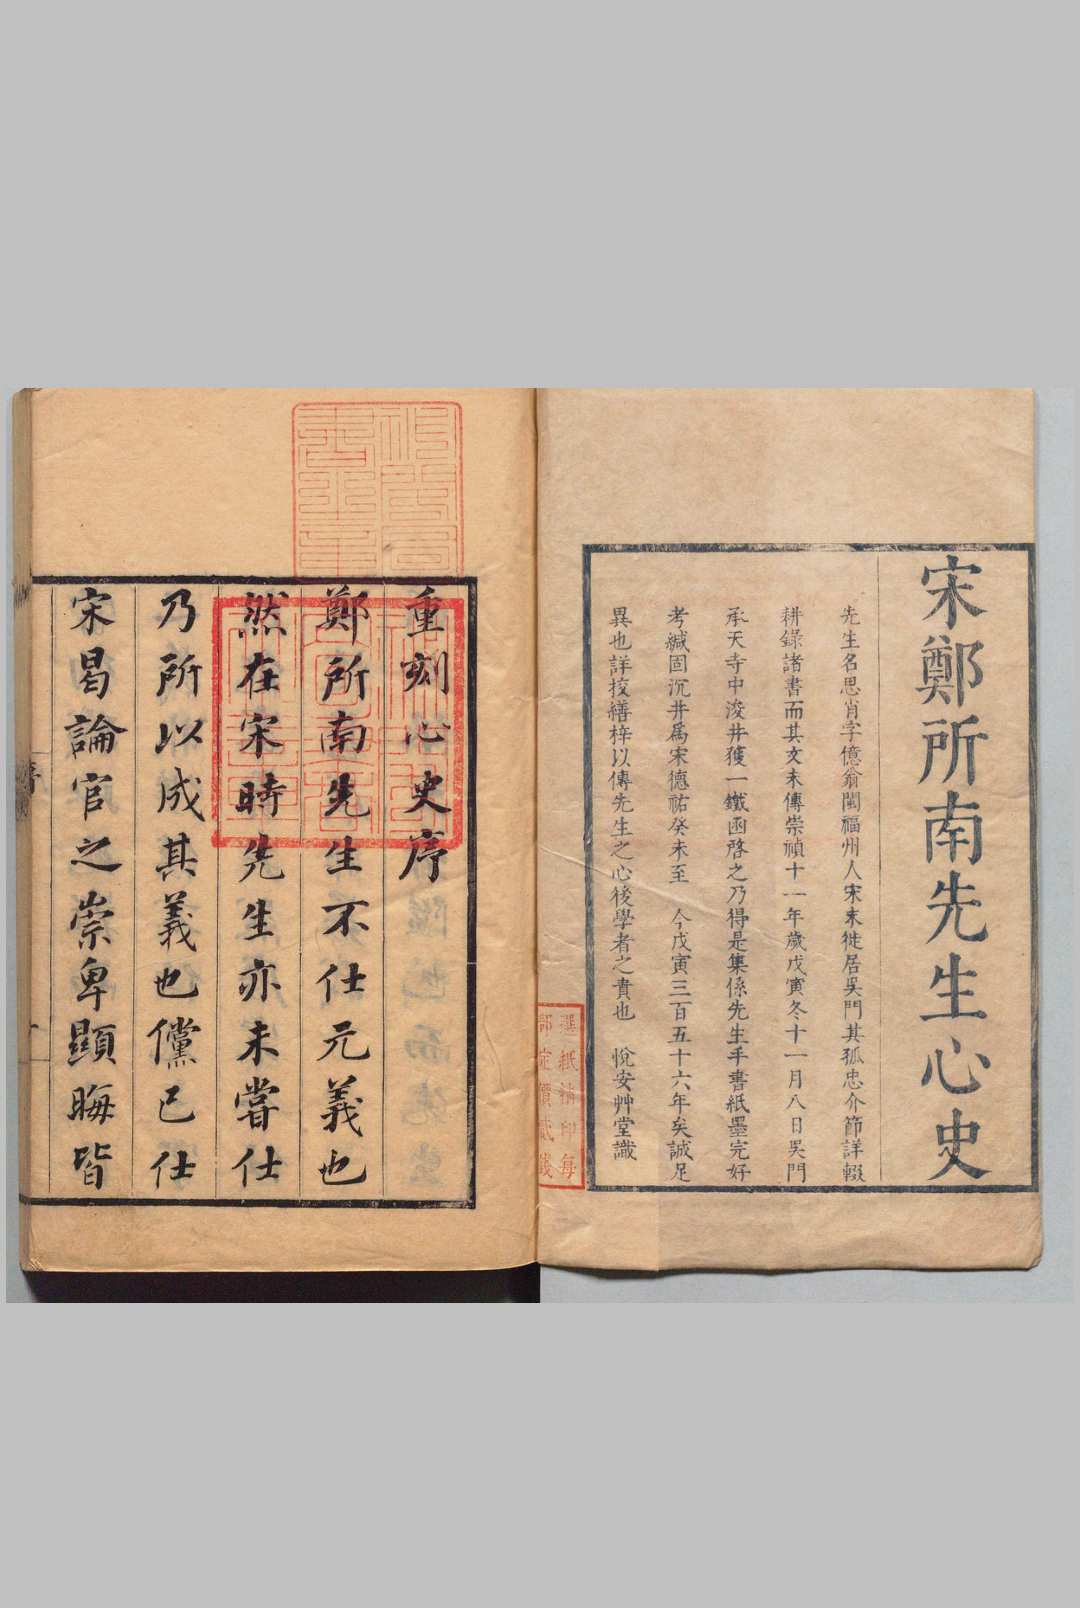 宋鄭所南先生心史
先生名思肖字億翁閩福州人宋末徙居吳門其孤忠介節詳輟
耕錄諸書而其文未傳崇禎十一年歲戊寅冬十一月八日吳門
承天寺中浚井獲一鐵函啓之乃得是集係先生手書紙墨完好
考緘固沉井爲宋德祐癸未至　今戊寅三百五十六年矣誠足
異也詳挍繕梓以傳先生之心後學者之責也　悅安艸堂識
選紙
印每
部定價貳錢
重刻心史序
鄭所南先生不仕元義也
然在宋時先生亦未嘗仕
乃所以成其義也儻已仕
宋曷論官之崇卑顯晦皆
序